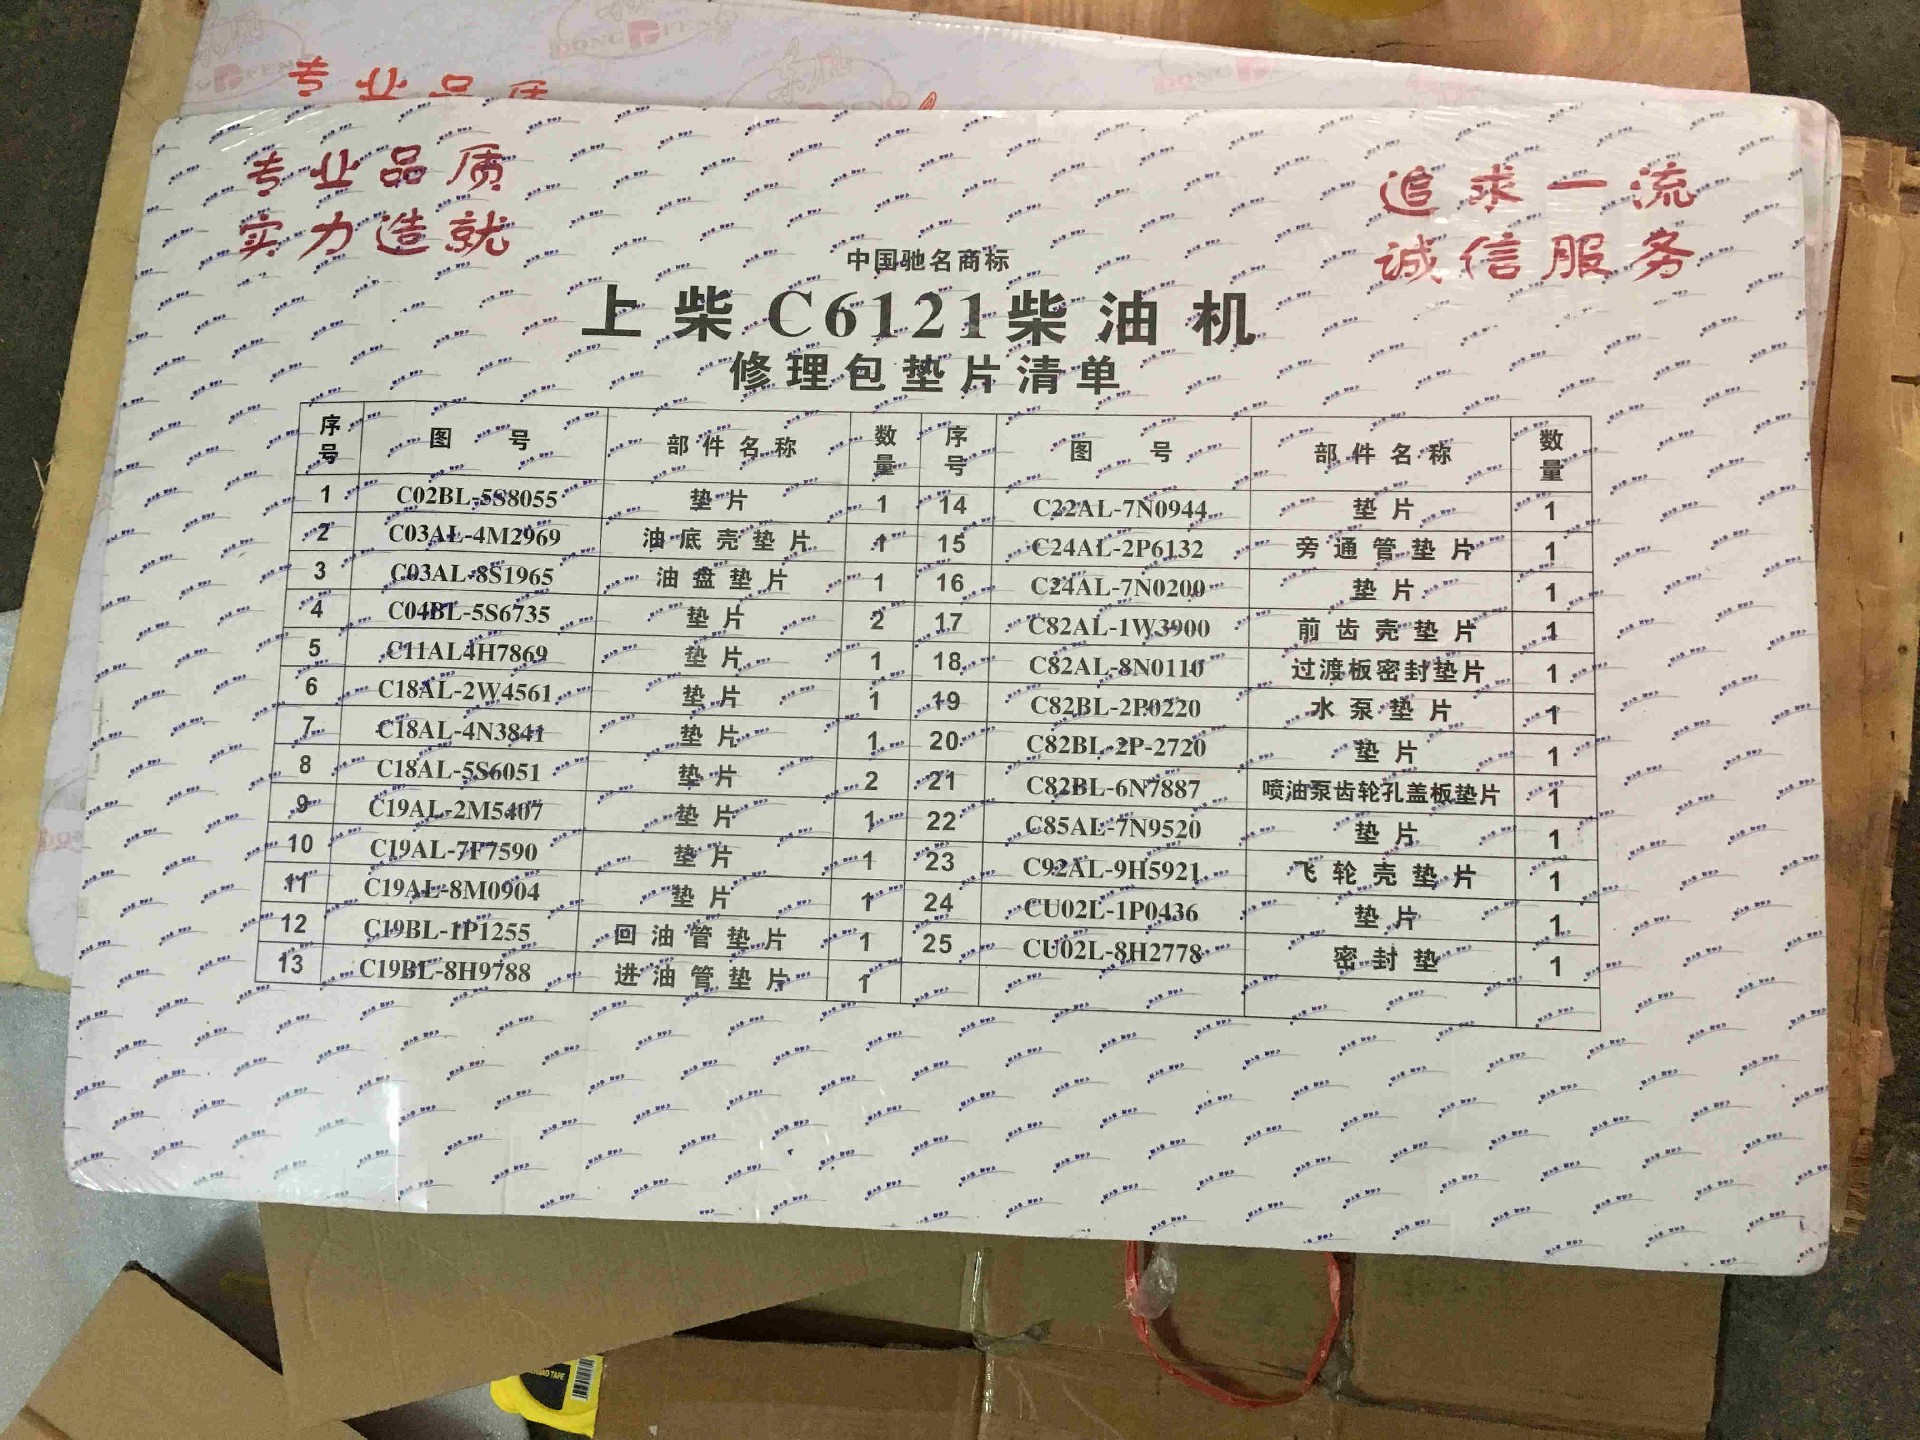 专业品质
专业品质
实力造就
追求一流
诚信服务
中国驰名商标
上柴C6121柴油机
修理包垫片清单
序号 图号 部件名称 数量 序号 图号 部件名称 数量
1 C02BL-5S8055 垫片 1 14 C22AL-7N0944 垫片 1
2 C03AL-4M2969 油底壳垫片 1 15 C24AL-2P6132 旁通管垫片 1
3 C03AL-8S1965 油盘垫片 1 16 C24AL-7N0200 垫片 1
4 C04BL-5S6735 垫片 2 17 C82AL-1W3900 前齿壳垫片 1
5 C11AL4H7869 垫片 1 18 C82AL-8N0110 过渡板密封垫片 1
6 C18AL-2W4561 垫片 1 19 C82BL-2P0220 水泵垫片 1
7 C18AL-4N3841 垫片 1 20 C82BL-2P-2720 垫片 1
8 C18AL-5S6051 垫片 2 21 C82BL-6N7887 喷油泵齿轮孔盖板垫片 1
9 C19AL-2M5407 垫片 1 22 C85AL-7N9520 垫片 1
10 C19AL-7F7590 垫片 1 23 C92AL-9H5921 飞轮壳垫片 1
11 C19AL-8M0904 垫片 1 24 CU02L-1P0436 垫片 1
12 C19BL-1P1255 回油管垫片 1 25 CU02L-8H2778 密封垫 1
13 C19BL-8H9788 进油管垫片 1